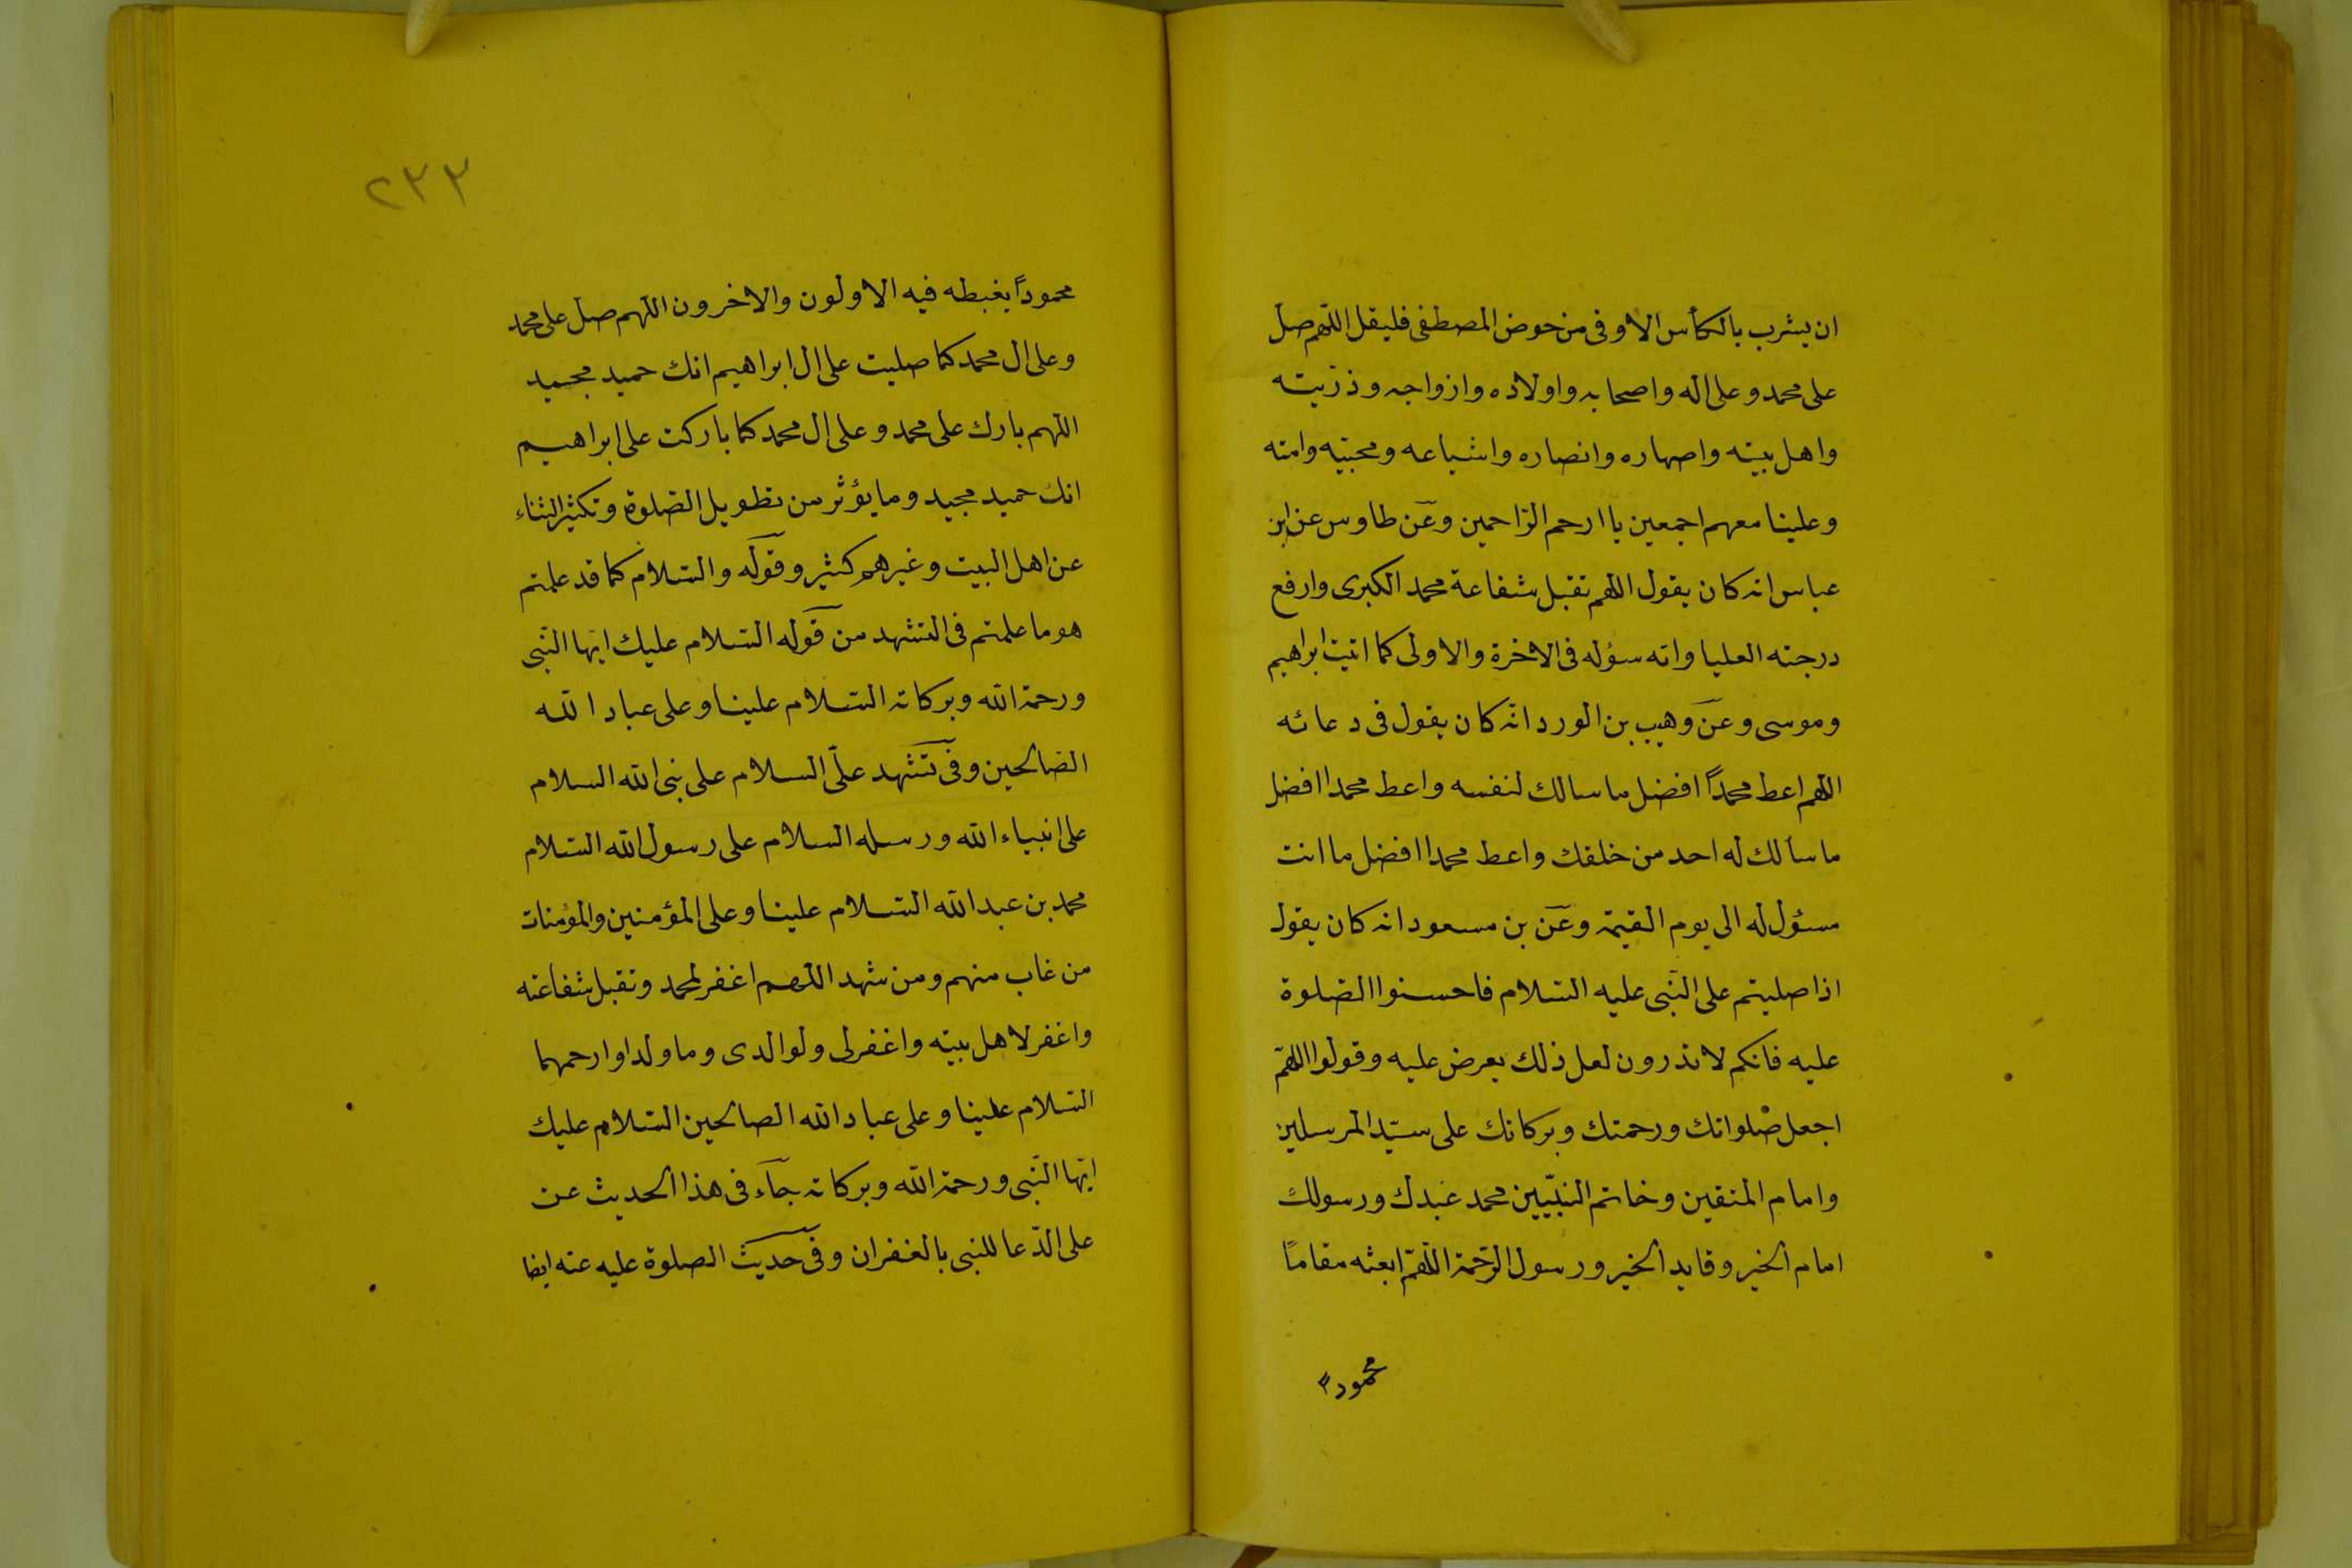 ان يشرب بالكأس الاوفى من حوض المصطفى فليقل اللهم صل
على محمد وعلى اله واصحابه واولاده وازواجه وذرّيته
واهل بيته واصهاره وانصاره واشياعه ومحبّيه وامته
وعلينا معهم اجمعين يا ارحم الرّاحمين وعن طاوس عن ابن
عباس انه كان يقول اللهم تقبل شفاعة محمد الكبرى وارفع
درجته العليا واته سؤله فى الاخرة والاولى كما اتيت ابراهيم
وموسى وعن وهيب بن الورد انّه كان يقول فى دعائه
اللهم اعط محمداً افضل ما سالك لنفسه واعط محمدا افضل
ما سألك له احد من خلقك واعط محمدا افضل ما انت
مسئول له الى يوم القيمة وعن بن مسعود انه كان يقول
اذا صليتم على النّبى عليه السّلام فاحسنوا الصّلوة
عليه فانكم لا تدرون لعل ذلك يعرض عليه وقولوا اللهمّ
اجعل صلواتك ورحمتك وبركاتك على سيّد المرسلين
وامام المتقين وخاتم النبّيين محمد عبدك ورسولك
امام الخير وقايد الخير ورسول الرّحمة اللّهمّ ابعثه مقاماً
محمودا
٢٣٣
محموداً يغبطه فيه الاولون والاخرون اللهم صل على محمد
وعلى ال محمد كما صليت على ال ابراهيم انك حميد مجيد
اللهم بارك على محمد وعلى ال محمد كما باركت على ابراهيم
انك حميد مجيد وما يؤثر من تطويل الصّلوة وتكثير الثناء
عن اهل البيت وغيرهم كثير وقوله والسّلام كما قد علمتم
هو ما علمتم فى التشهد من قوله السّلام عليك ايّها النّبى
ورحمة الله وبركاته السّلام علينا وعلى عباد الله
الصّالحين وفى تشهد علىّ السلام على نبى الله السلام
على انبياء الله ورسله السلام على رسول الله السّلام
محمد بن عبد الله السّلام علينا وعلى المؤمنين والمؤمنات
من غاب منهم ومن شهد اللهم اغفر لمحمد وتقبل شفاعته
واغفر لاهل بيته واغفر لى ولوالدى وما ولدا وارحمهما
السّلام علينا وعلى عباد الله الصالحين السّلام عليك
ايّها النّبى ورحمة الله وبركاته جآء فى هذا الحديث عن
على الدّعا للنبى بالغفران وفى حديث الصلوة عليه عنه ايضا